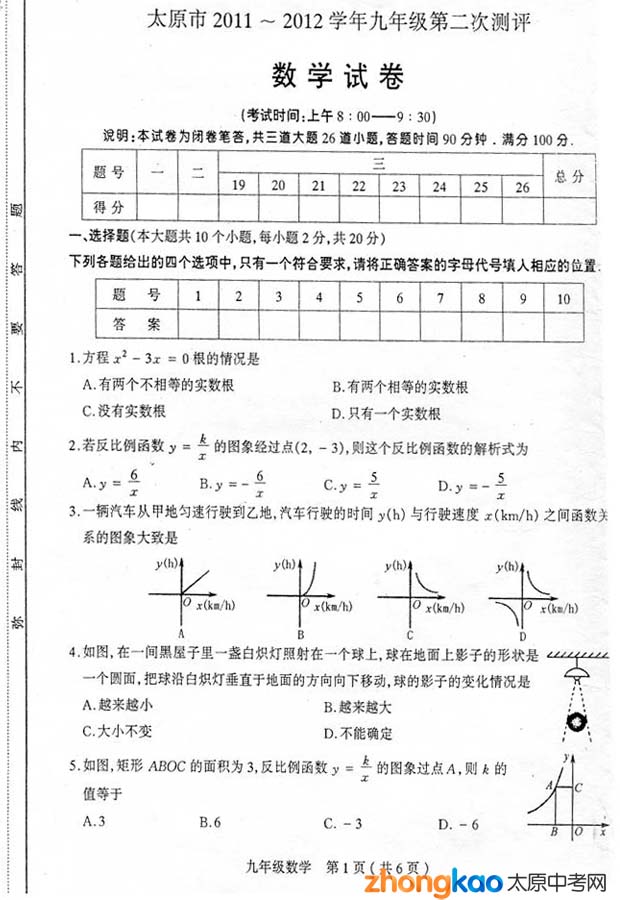 太原市2011～2012学年九年级第二次测评
数学试卷
(考试时间:上午8:00——9:30)
说明:本试卷为闭卷笔答,共三道大题26道小题,答题时间90分钟.满分100分.
题号 一 二 三 总分
19 20 21 22 23 24 25 26
得分
一、选择题(本大题共10个小题,每小题2分,共20分)
下列各题给出的四个选项中,只有一个符合要求,请将正确答案的字母代号填入相应的位置.
题 号 1 2 3 4 5 6 7 8 9 10
答 案
1.方程 x² - 3x = 0根的情况是
A.有两个不相等的实数根 B.有两个相等的实数根
C.没有实数根 D.只有一个实数根
2.若反比例函数 y = k/x 的图象经过点(2, -3),则这个反比例函数的解析式为
A.y = 6/x B.y = - 6/x C.y = 5/x D.y = - 5/x
3.一辆汽车从甲地匀速行驶到乙地,汽车行驶的时间 y(h) 与行驶速度 x(km/h) 之间函数关
系的图象大致是
y(h) y(h) y(h) y(h)
O x(km/h) O x(km/h) O x(km/h) O x(km/h)
A B C D
4.如图,在一间黑屋子里一盏白炽灯照射在一个球上,球在地面上影子的形状是
一个圆面,把球沿白炽灯垂直于地面的方向向下移动,球的影子的变化情况是
A.越来越小 B.越来越大
C.大小不变 D.不能确定
5.如图,矩形 ABOC 的面积为3,反比例函数 y = k/x 的图象过点A,则 k 的
值等于
A.3 B.6 C. -3 D. -6
y
A C
B O x
九年级数学 第1页(共6页)
zhongkao 太原中考网
弥 封 线 内 不 要 答 题